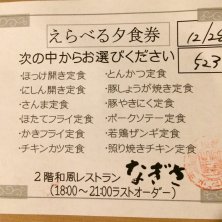 えらべる夕食券
次の中からお選びください
12/28
523
・ほっけ開き定食 ・とんかつ定食
・にしん開き定食 ・豚しょうが焼き定食
・さんま定食 ・豚やきにく定食
・ほたてフライ定食 ・ポークソテー定食
・かきフライ定食 ・若鶏ザンギ定食
・チキンカツ定食 ・照り焼きチキン定食
2階和風レストラン なぎさ
(18:00～21:00ラストオーダー)